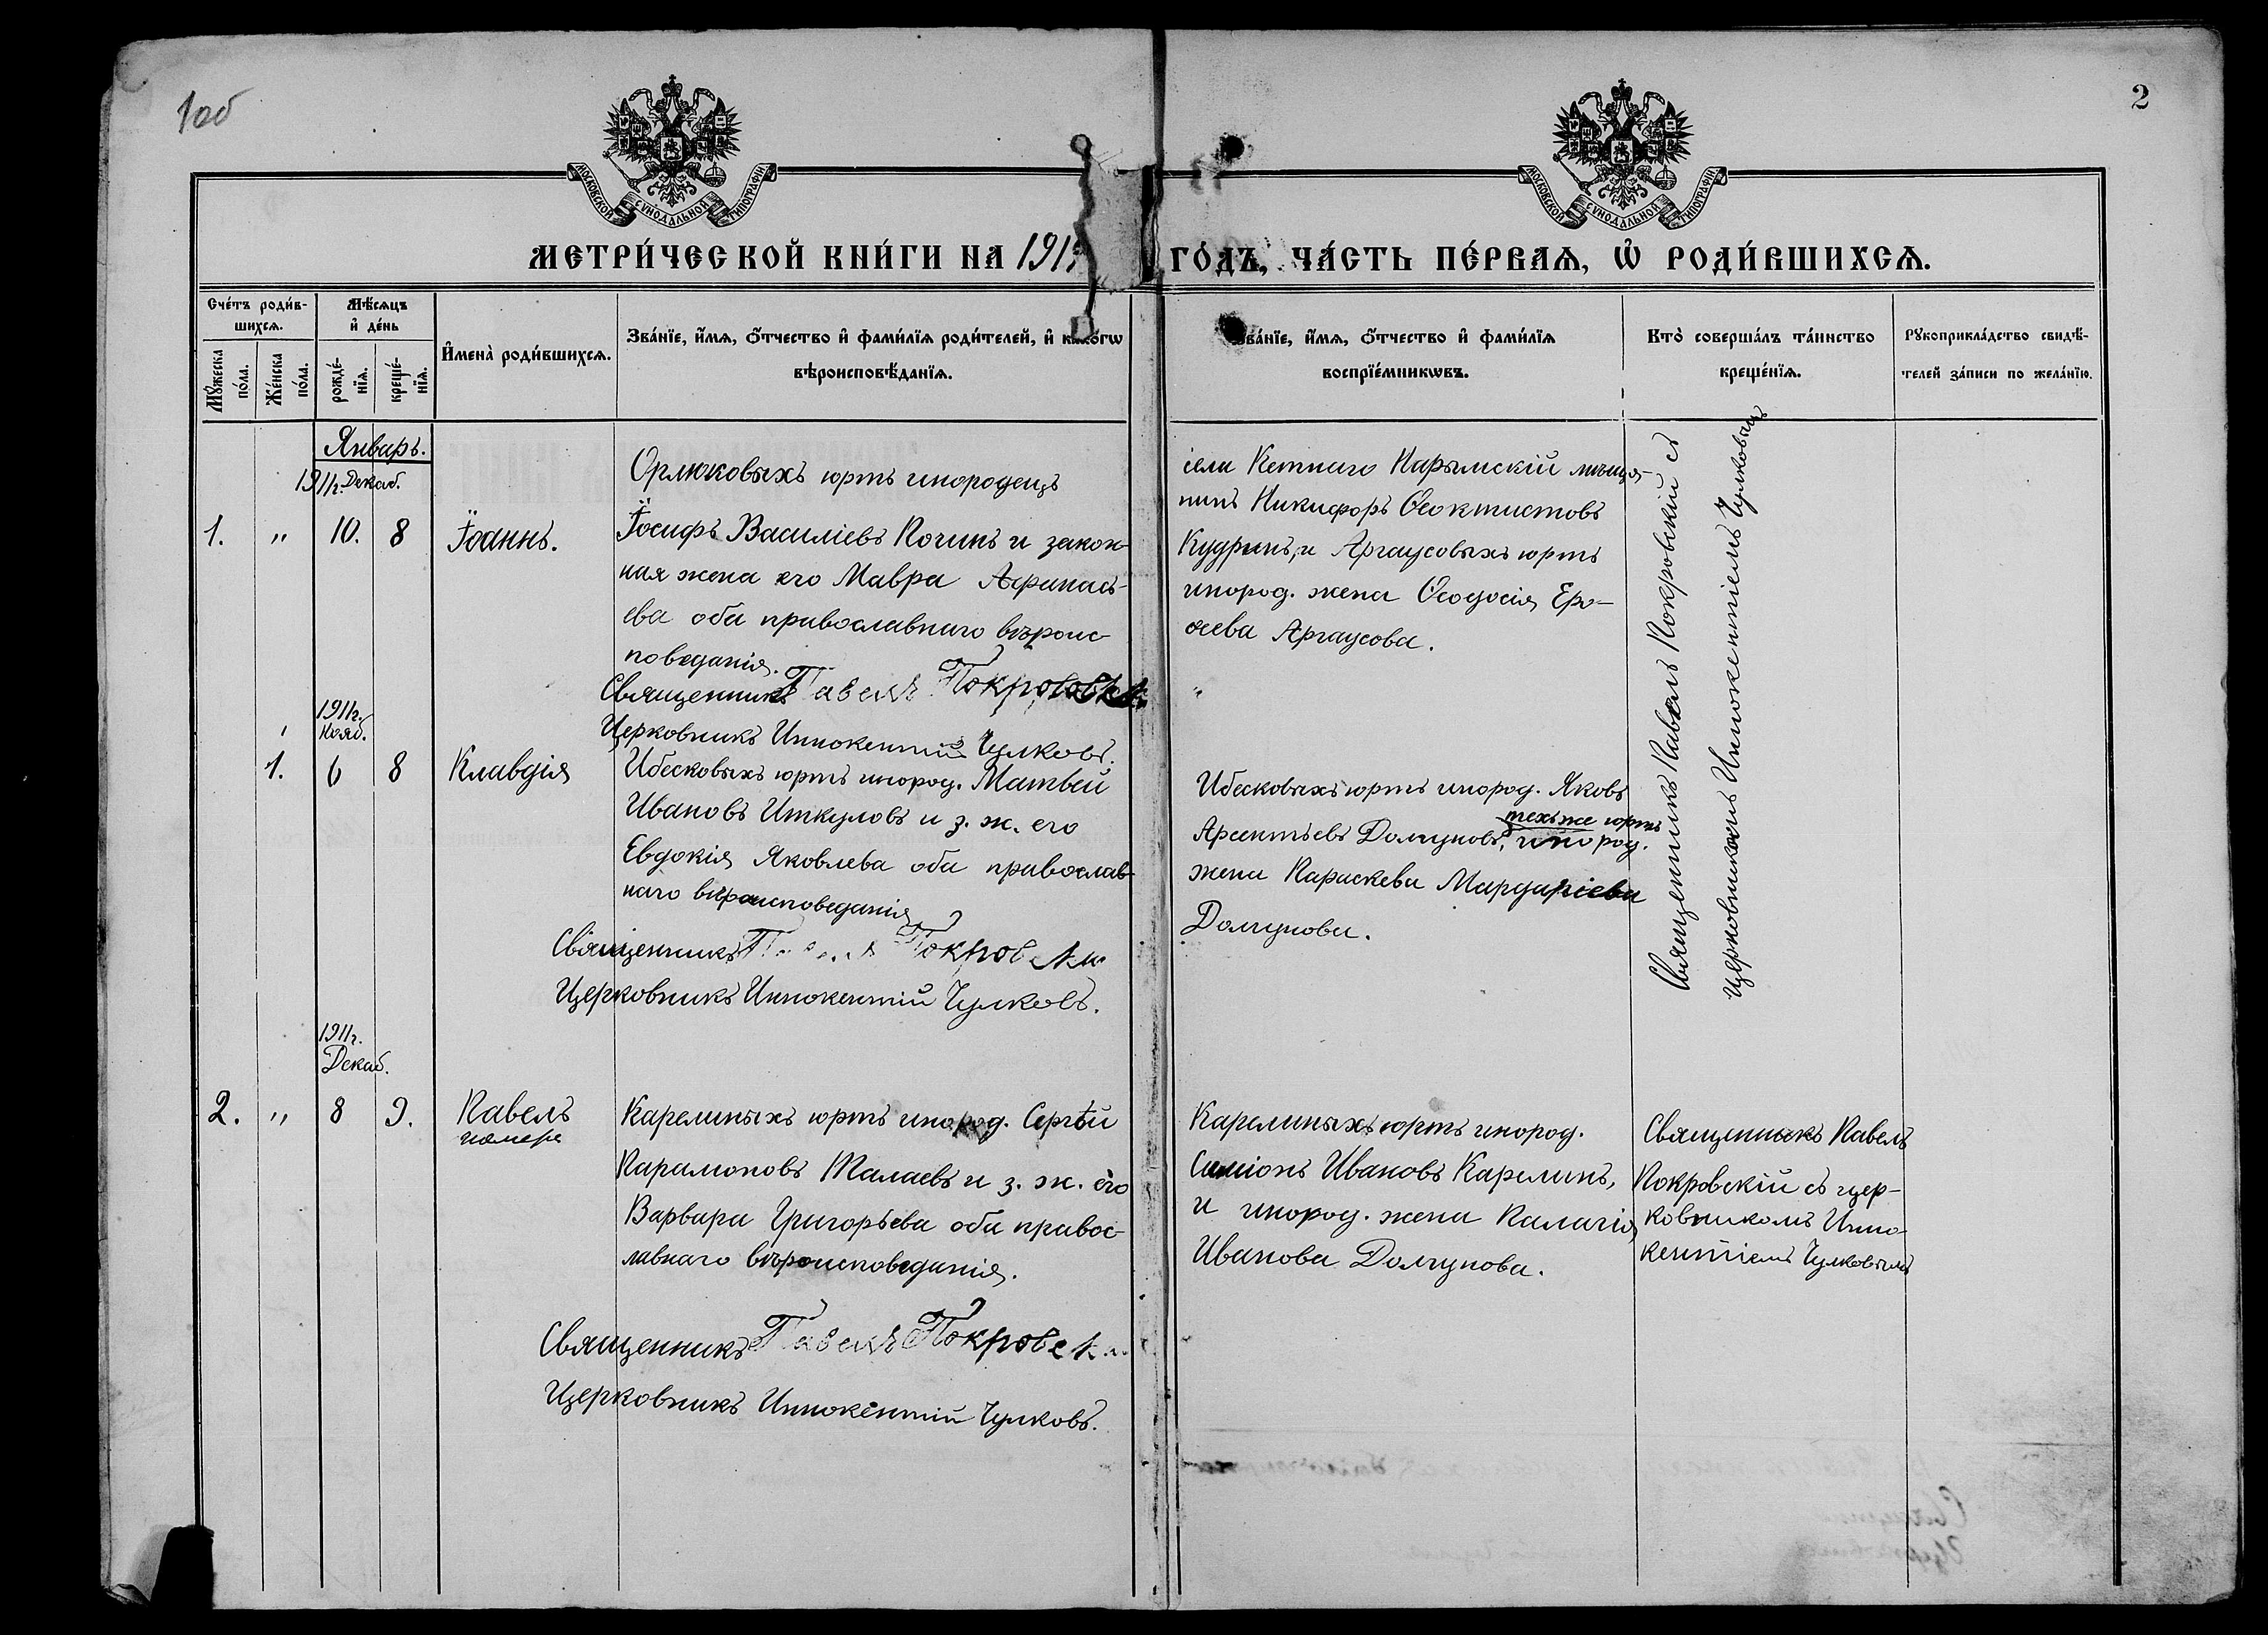 1об
2
МОСКОВСКОЙ СѴНОДАЛЬНОЙ ТИПОГРАФІИ
МОСКОВСКОЙ СѴНОДАЛЬНОЙ ТИПОГРАФІИ
МЕТРИ́ЧЕСКОЙ КНИ́ГИ НА 191
ГО́ДЪ, ЧА́СТЬ ПЕ́РВАѦ, Ѡ҆ РОДИ́ВШИХСѦ.
Сче́тъ роди́в-
шихсѧ.
Мѣ́сѧцъ
и҆ де́нь
Мꙋ́жеска
по́ла.
Же́нска
по́ла.
рожде́-
нїѧ.
креще́-
нїѧ.
И҆мена̀ роди́вшихсѧ.
Зва́нїе, и҆́мѧ, ѻ҆́тчество и҆ фами́лїѧ роди́телей, и҆ како́гѡ
вѣроисповѣ́данїѧ.
Зва́нїе, и҆́мѧ, ѻ҆́тчество и҆ фами́лїѧ
воспрїе́мникѡвъ.
Кто̀ соверша́лъ та́инство
креще́нїѧ.
Рꙋкоприкла́дство свидѣ́-
телей за́писи по жела́нїю.
Январь.
1911г. Декаб.
1. " 10. 8 Іоаннъ.
Орлюковыхъ юртъ инородецъ
Іосифъ Василіевъ Кочинъ и закон-
ная жена его Мавра Афанась-
ева оба православнаго вѣроис-
поведанія.
Священникъ Павелъ Покровскій
Церковникъ Иннокентій Чулковъ.
села Кетнаго Нарымскій мѣща-
нинъ Никифоръ Ѳеоктистовъ
Кудринъ, и Аргаусовыхъ юртъ
инород. жена Ѳеодосія Еро-
ѳеева Аргаусова.
Священникъ Павелъ Покровскій съ
церковникомъ Иннокентіемъ Чулковымъ
1911г.
Нояб.
1. 6 8 Клавдія
Ибесковыхъ юртъ инород. Матвей
Ивановъ Иткуловъ и з. ж. его
Евдокія Яковлева оба православ-
наго вѣроисповеданія
Священникъ Павелъ Покровскій
Церковникъ Иннокентій Чулковъ.
Ибесковыхъ юртъ инород. Яковъ
техъ же юртъ
Арсентьевъ Долгуновъ, инород.
жена Параскева Мардаріева
Долгунова.
1911г.
Декаб.
2. " 8 9. Павелъ
Карелиныхъ юртъ инород. Сергѣй
Парамоновъ Талаевъ и з. ж. его
Варвара Григорьева оба правос-
лавнаго вѣроисповеданія.
Священникъ Павелъ Покровскій
Церковникъ Иннокентій Чулковъ.
Карелиныхъ юртъ инород.
Симіонъ Ивановъ Карелинъ,
и инород. жена Палагія
Иванова Долгунова.
Священникъ Павелъ
Покровскій съ цер-
ковникомъ Инно-
кентіемъ Чулковымъ